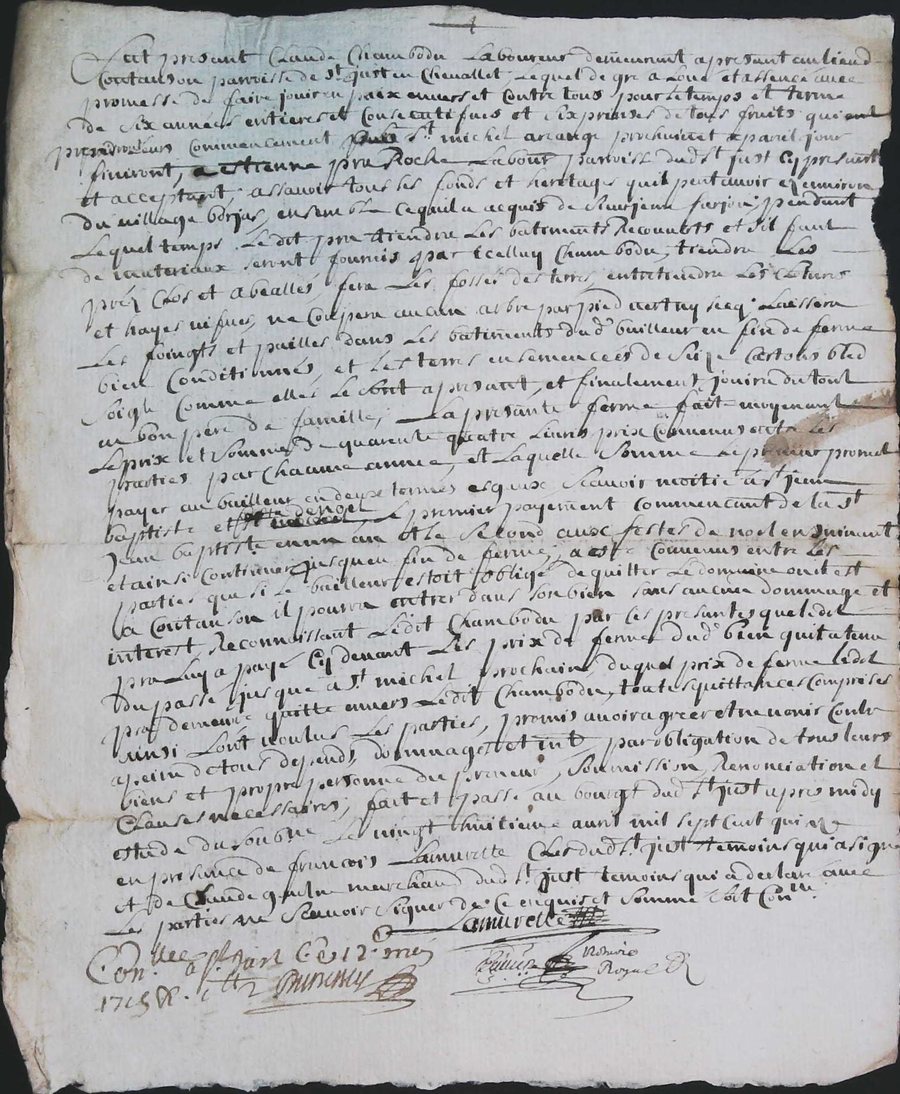 Fut presant Claude Chambodu Laboureur demeurant apresant au lieu de
Coutanson parroisse de St Just en Chevallet, Lequel de gre a Loue et assence avec
promesse de faire jouir en paix envers et Contre tous pour le temps et terme
de Six années entieres et Consecutifues et Six prises de tous fruits qui ont
Commencement St michel arcange prochain et a pareil jour
finiront, a Estienne pra Roche Labour parroisse dud St Just Cy present
et acceptant, assavoir tous les fonds et heritages quil peut avoir environ
du village borjas, ensemble ce quil a acquis de Sieur Jean farjon, pendant
Lequel temps Ledit pra tiendra Les batiments Recouverts et Sil faut
de materiaux seront fournis par icelluy Chambodu, tiendra Les
préz Clos et abealles, fera Les fossés des terres, entretiendra Les Clotures
et hayes vifues, ne Coupera aucun arbre par pied vert ny secq, Laissera
Les foingts et pailles dans Les batiments dud bailleur en fin de ferme
bien Conditionnés, et Les terres ensemencées de Seize Cartons bled
Soigle Comme elles Le Sont a presant, et finalement jouira du tout
en bon père de famille, La presante ferme faite moyenant
Le prix et Somme de quarante quatre Livres prix Convenus entre Les
parties par Chacune année, et Laquelle Somme Le preneur promet
payer au bailleur en deux termes esgaux Scavoir moitié a St jean
baptiste et de noel, Le premier payement Commencant de la St
Jean baptiste en un an et le Second aux festes de noel ensuivant
et ainsi Continuer jusques en fin de ferme, a esté Convenus entre Les
parties que si Le bailleur estoit obligé de quitter Le domaine ou il est
a Coutanson il pourra entrer dans son bien sans aucune dommage et
interest, Reconnoissant Ledit Chambodu par Ces presantes que ledit
pra Luy a payé Cy devant Les prix de ferme dud bien quil a tenu
du passé jusque a St michel prochain, duquel prix de ferme ledit
pra demeure quitte envers Ledit Chambodu, toutes quittances Comprises
ainsi Lont voulus Les parties, promis avoir agreer et ne venir Contre
a peine de tous depends, dommages et int, par obligation de tous leurs
biens et propre personne du preneur, Soummission, Renonciation et
Clauses necessaires, fait et passé au bourgt dud St Just apres midy
estude du Le vingt huitieme avril mil Sept Cent quinze
en presance de francois Lamurette Clerc dud St Just temoins qui a signé
et de Claude marchand dud St Just temoins qui a declaré avec
Les parties ne Scavoir Signer de Ce enquis et Sommé Soit Con
Lamurette
Con St Just Ce 12 may
1715
Notaire
Royal